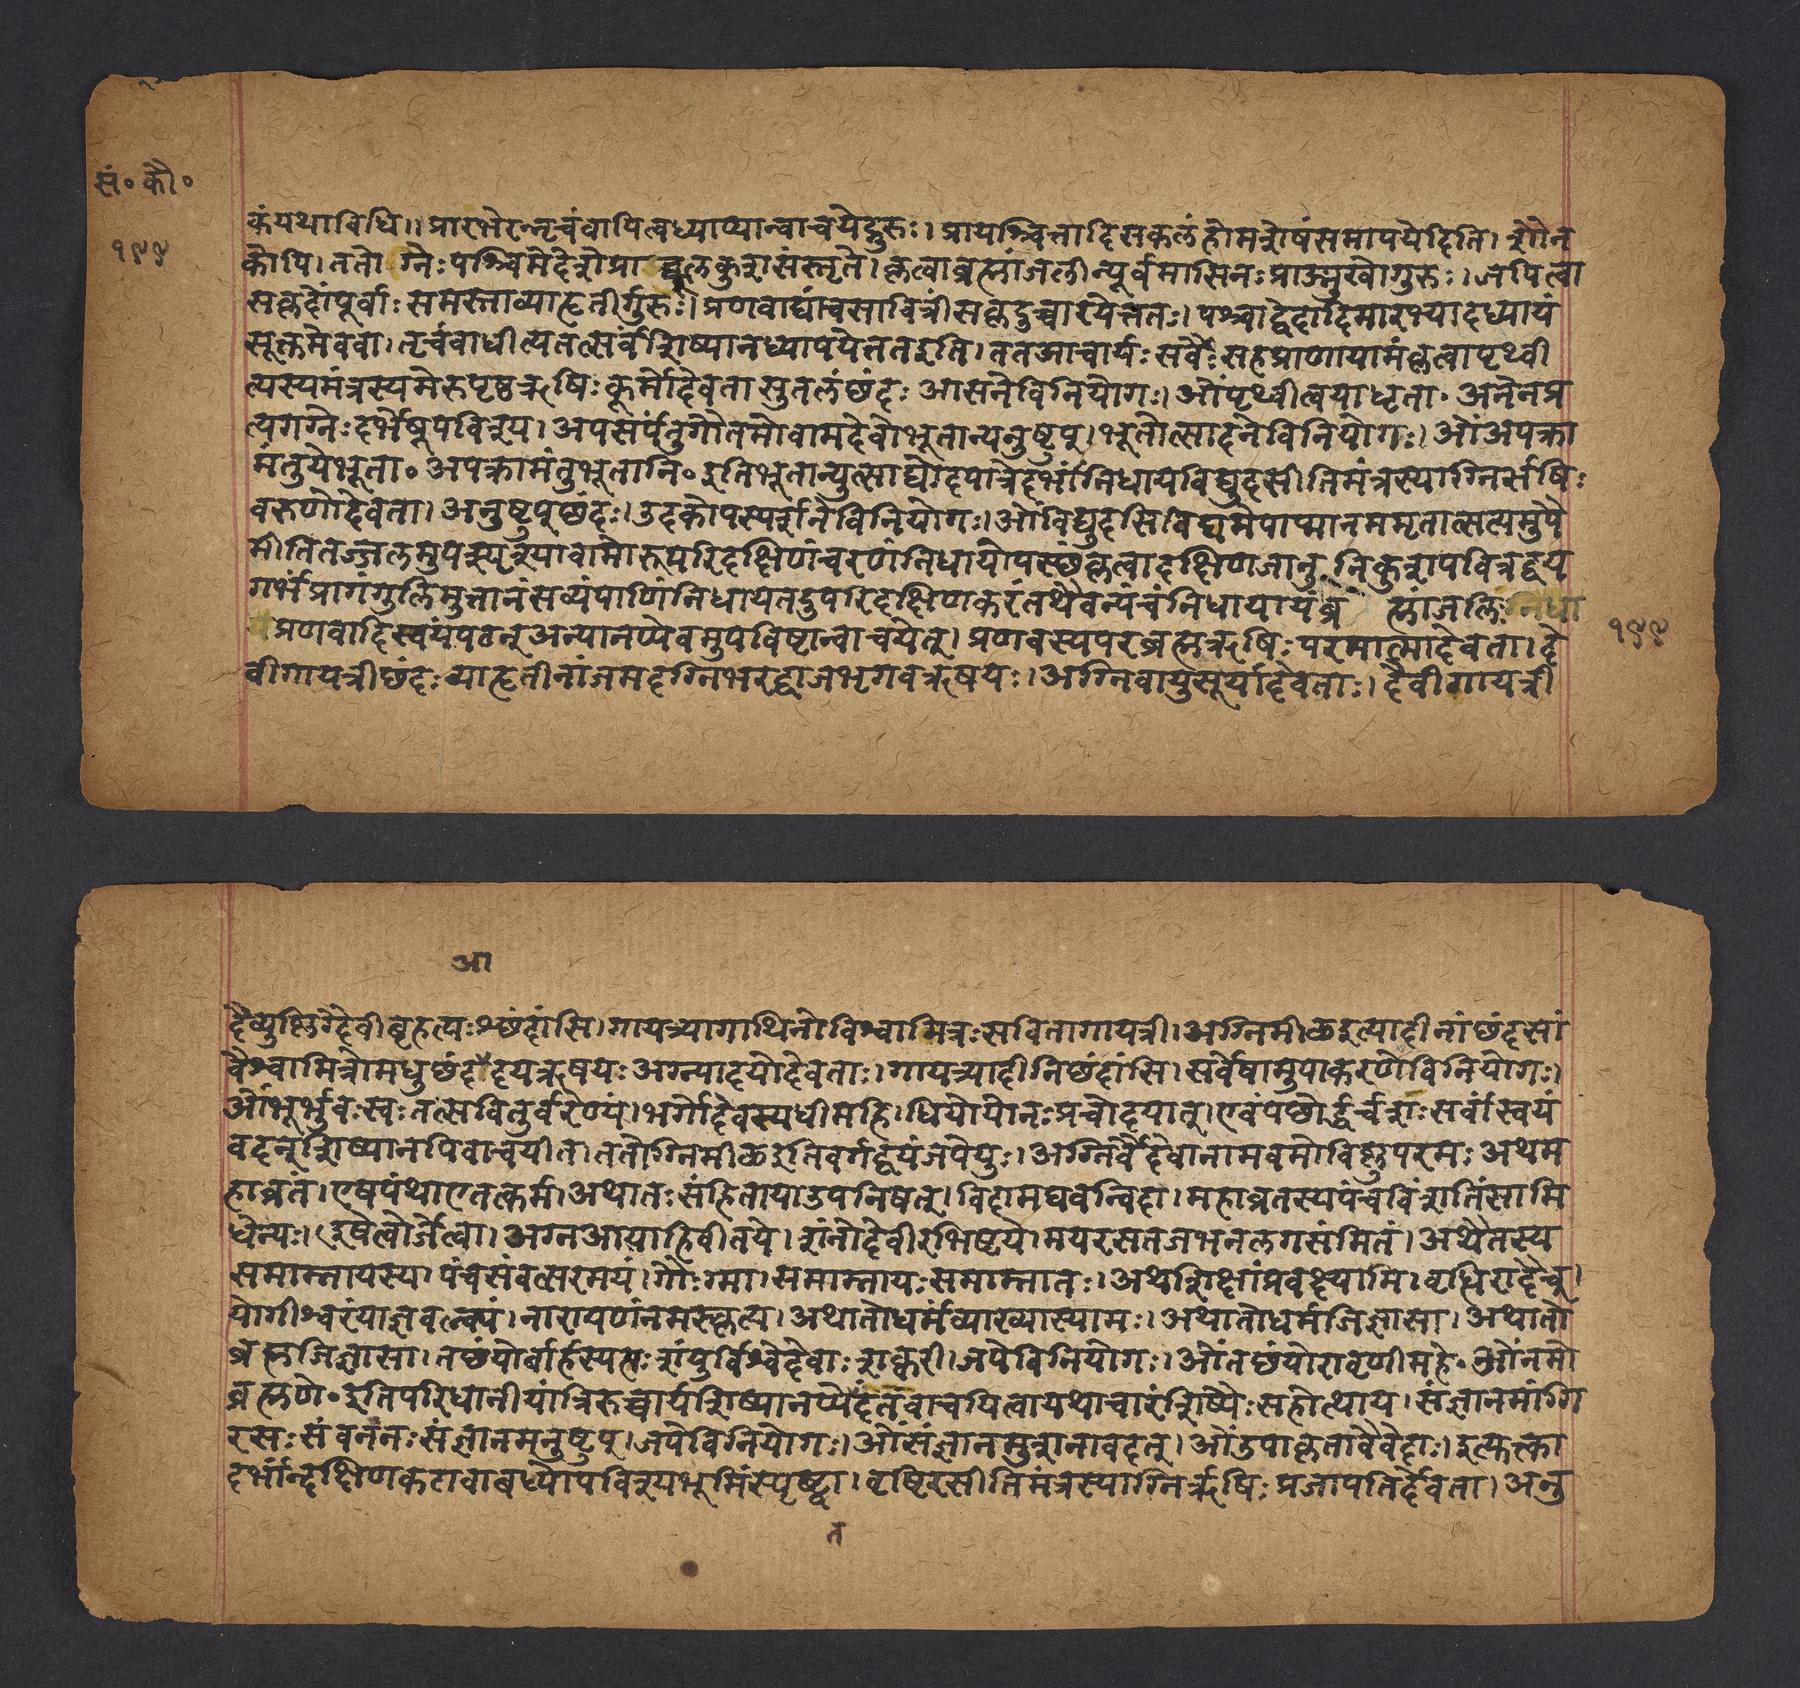 सं॰ कौ॰
१९९
कंयथाविधि।। प्रारभेरन्नृचंवापित्वध्याप्यान्वाचयेद्गुरुः। प्रायश्चित्तादिसकलंहोमशेषंसमापयेदिति। शौन
कोपि। ततो ग्नेः पश्चिमेदेशेप्रा क्कूलकुशसंस्तृते। कृत्वाब्रह्मांजलीन्पूर्वमासिनः प्राङ्मुखोगुरुः। जपित्वा
सकृदोंपूर्वाः समस्ताव्याहृतीर्गुरुः। प्रणवाद्यांचसावित्रींसकृदुच्चारयेत्ततः। पश्चाद्वेदादिमारभ्याद्ध्यायं
सूक्तमेववा। तृचंवाधीत्यतत्सर्वंशिष्यानध्यापयेत्ततइति। ततआचार्यः सर्वैः सहप्राणायामंकृत्वापृथ्वी
त्यस्यमंत्रस्यमेरुपृष्ठऋषिः कूर्मोदेवता सुतलंछंदः आसनेविनियोगः। ओंपृथ्वीत्वयाधृता॰ अनेनप्र
त्यगग्नेः दर्भेषूपविश्य। अपसर्पंतुगौतमोवामदेवोभूतान्यनुष्टुप्। भूतोत्सादनेविनियोगः। ओंअपक्रा
मंतुयेभूता॰ अपक्रामंतुभूतानि॰ इतिभूतान्युत्साद्योदपात्रेदर्भान्निधायविद्युदसीतिमंत्रस्याग्निर्ऋषिः
वरुणोदेवता। अनुष्टुप्छंदः। उदकोपस्पर्शनेविनियोगः। ओंविद्युदसिविद्यमेपाप्मानममृतात्सत्यमुपै
मीतितज्जलमुपस्पृश्यावामोरूपरिदक्षिणंचरणंनिधायोपस्थंकृत्वादक्षिणजानु निकुशपवित्रद्वय
गर्भंप्रागंगुलिमुत्तानंसव्यंपाणिंनिधायतदुपरिदक्षिणकरंतथैवन्यंचंनिधायायंब्र ह्मांजलिः निधा
यप्रणवादिस्वयंपठन्अन्यानप्येवमुपविष्टान्वाचयेत्। प्रणवस्यपरब्रह्मऋषिः परमात्मादेवता। दे
वीगायत्रीछंदः व्याहृतीनांजमदग्निभरद्वाजभृगवऋषयः। अग्निवायुसूर्यादेवताः। दैवीगायत्री
१९९
आ
दैव्युष्णिग्दैवीबृहत्यः श्छंदांसि। गायत्र्यागाथिनोविश्वामित्रः सवितागायत्री। अग्निमीळइत्यादीनांछंदसां
वैश्वामित्रोमधुछंदादयऋषयः अग्न्यादयोदेवताः। गायत्र्यादीनिछंदांसि। सर्वेषामुपाकरणेविनियोगः।
ओंभूर्भुवःस्वः तत्सवितुर्वरेण्यं। भर्गोदेवस्यधीमहि। धियोयोनः प्रचोदयात्। एवंपछोर्द्धर्चशः सर्वांस्वयं
वदन्शिष्यानपिवाचयीत। ततोग्निमीळइतिवर्गद्वयंजपेयुः। अग्निर्वैदेवानामवमोविष्णुपरमः अथम
हाव्रतं। एषपंथाएतत्कर्म। अथातः संहितायाउपनिषत्। विदामघवन्विदा। महाव्रतस्यपंचविंशतिंसामि
धेन्यः। इषेत्वोर्जेत्वा। अग्नआयाहिवीतये। शंनोदेवीरभिष्टये। मयरसतजभनलगसंमितं। अथैतस्य
समाम्नायस्य। पंचसंवत्सरमयं। गौः ग्मा। समाम्नायः समाम्नातः। अथशिक्षांप्रवक्ष्यामि। वृधिरादैच्।
योगीश्वरंयाज्ञवल्क्यं। नारायणंनमस्कृत्य। अथातोधर्मव्याख्यास्यामः। अथातोधर्मजिज्ञासा। अथातो
ब्रह्मजिज्ञासा। तछंयोर्बार्हस्पत्यः शंयुर्विश्वेदेवाः शक्वरी। जपेविनियोगः। ओंतछंयोरावृणीमहे॰ ओंनमो
ब्रह्मणे॰ इतिपरिधानीयांत्रिरुच्चार्यशिष्यानप्येदंतंवाचयित्वायथाचारंशिष्यैः सहोत्थाय। संज्ञानमांगि
रसः संवननः संज्ञानमनुष्टुप्। जपेविनियोगः। ओंसंज्ञानमुशनावदत्। ओंउपाकृतावैवेदाः। इत्युक्त्का
दर्भान्दक्षिणकटावाबध्योपविश्यभूमिंस्पृष्ट्वा। वृष्टिरसीतिमंत्रस्याग्निर्ऋषिः प्रजापतिर्देवता। अनु
त